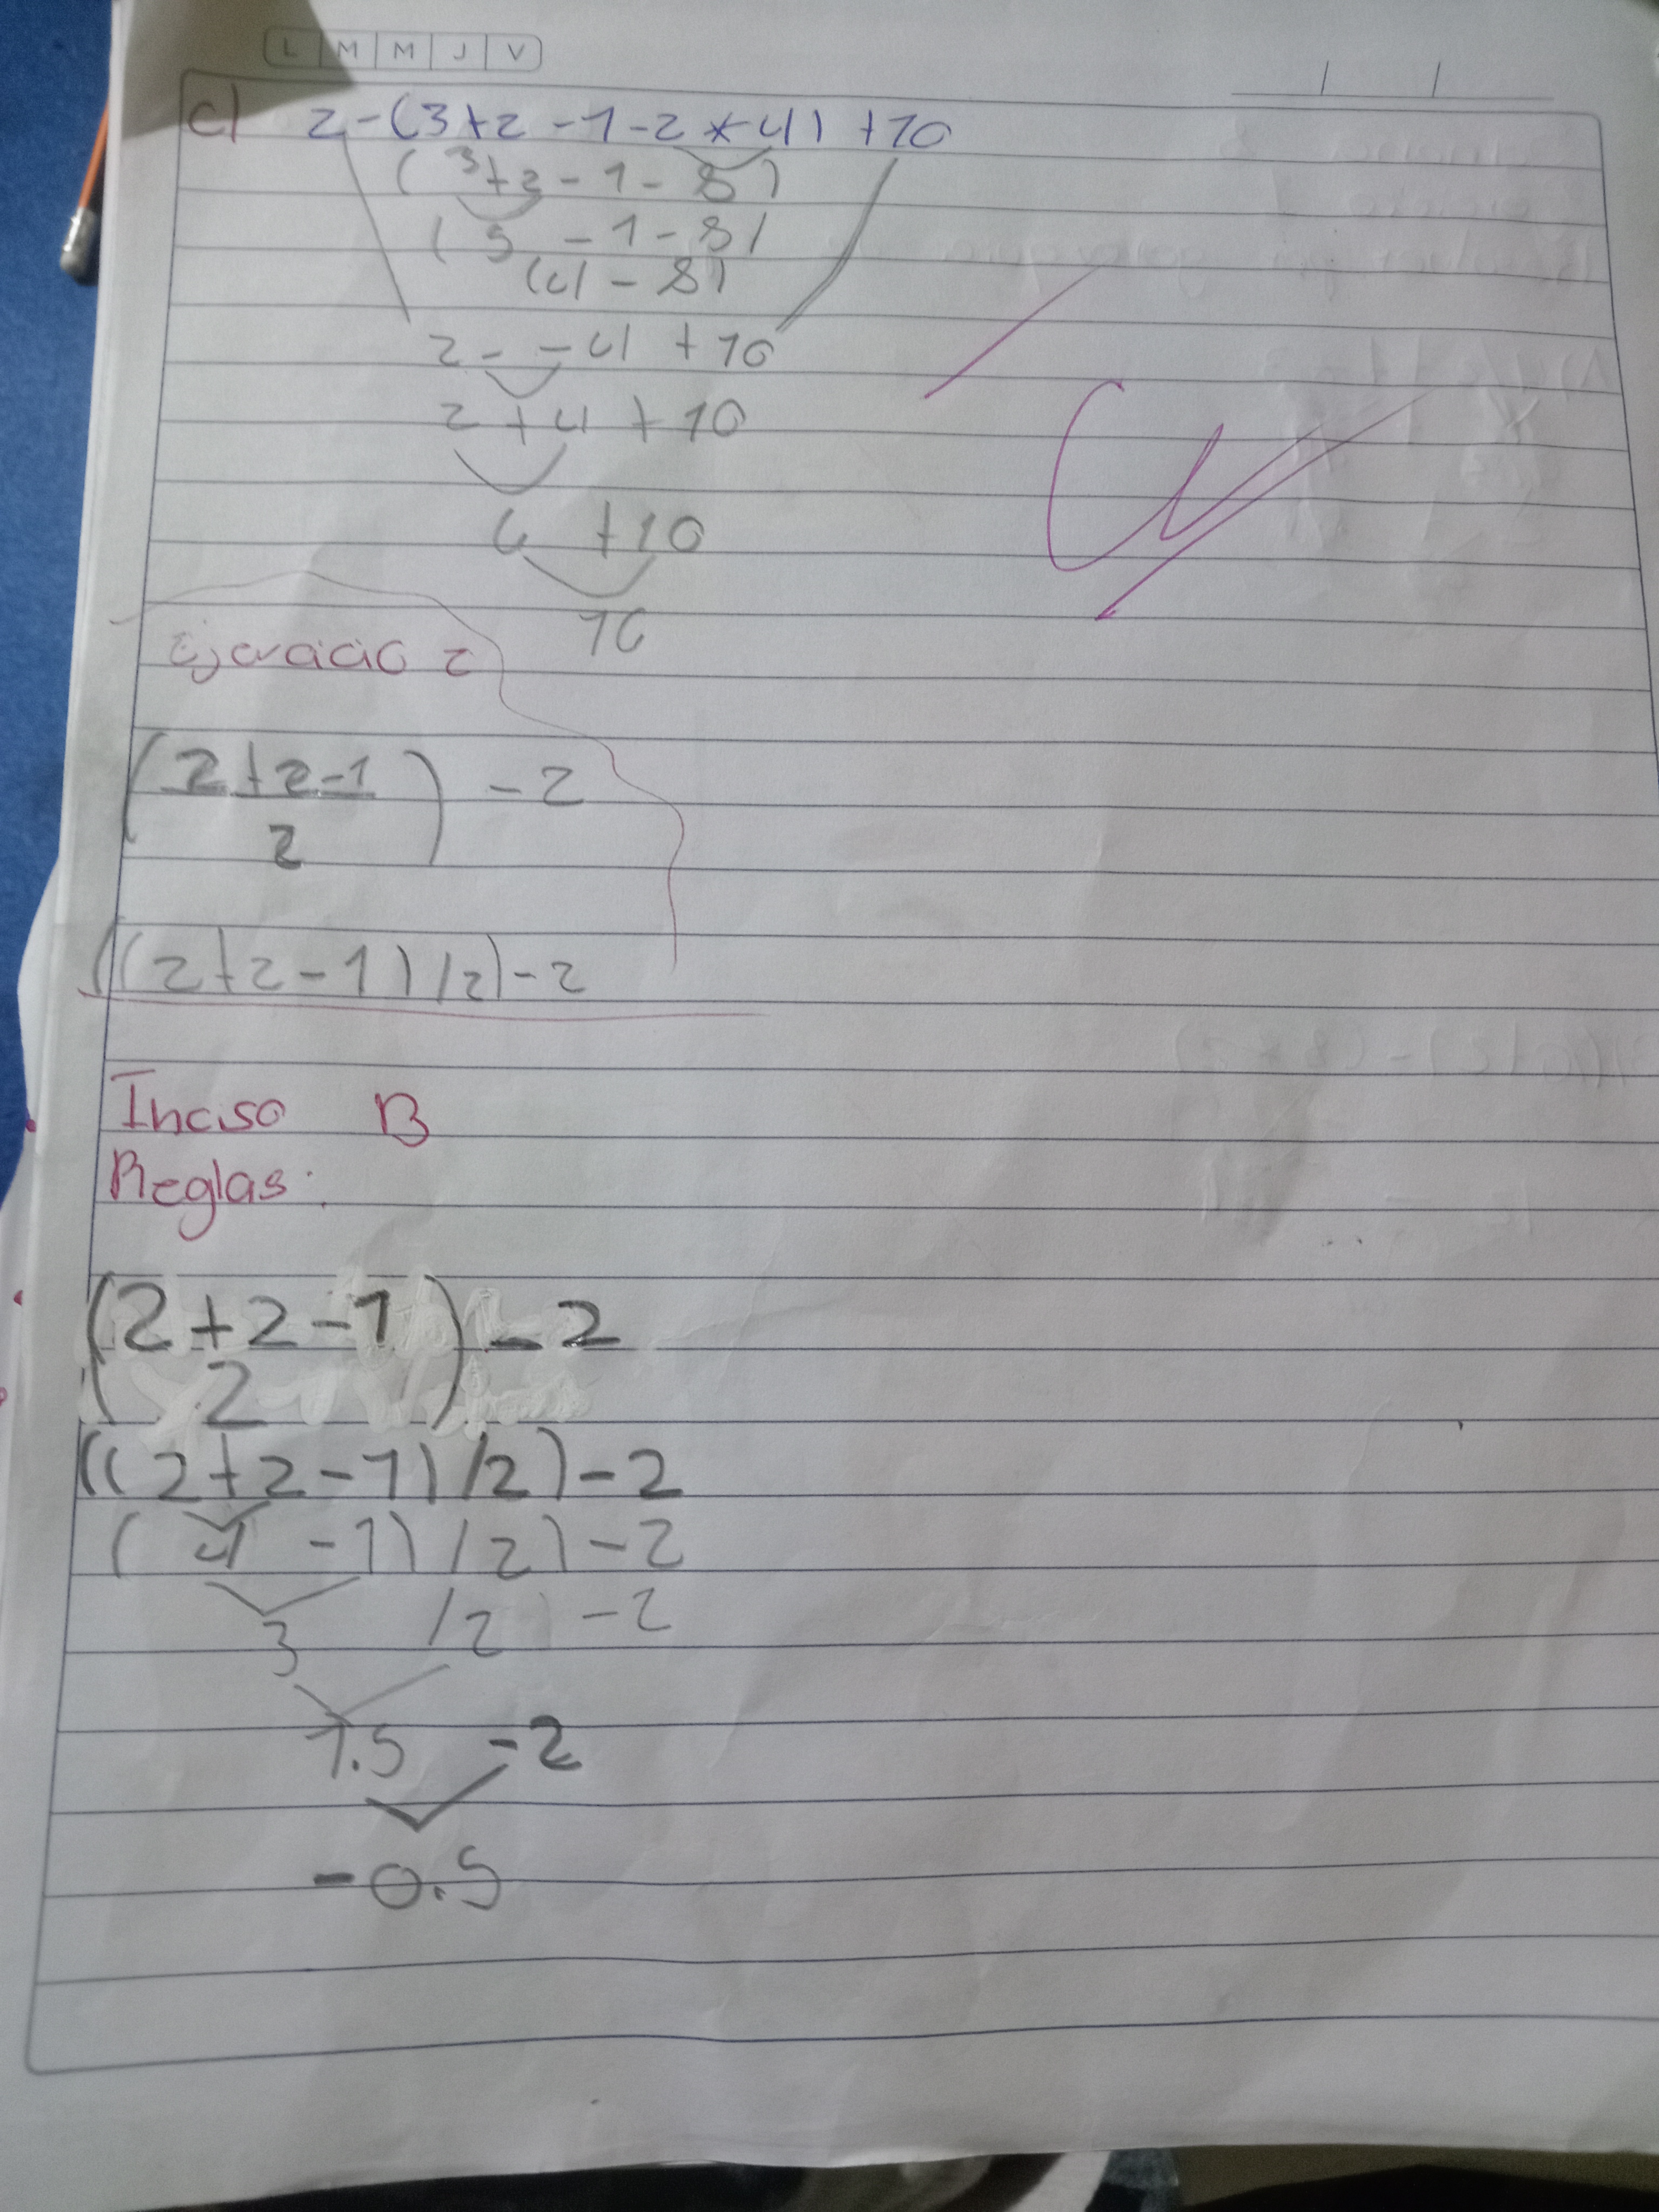 L M M J V
c) 2-(3+2-1-2*4)+10
(3+2-1-8)
(5-1-8)
(4-8)
2--4+10
2+4+10
6+10
16
Ejercicio 2
(2+2-1) -2
2
((2+2-1)/2)-2
Inciso B
Reglas:
(2+2-1)-2
2
((2+2-1)/2)-2
(4-1)/2)-2
3 /2)-2
1.5 -2
-0.5